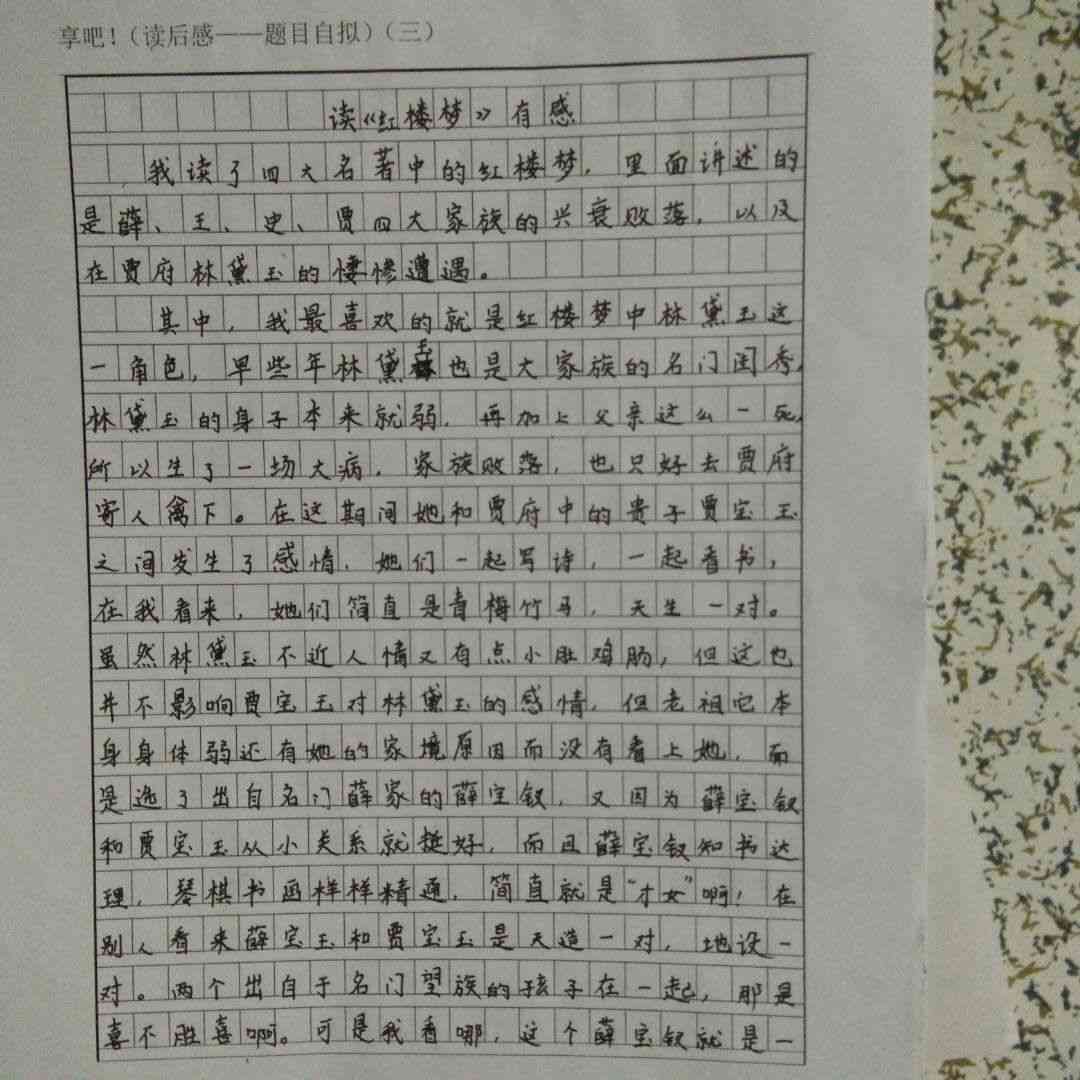 享吧！（读后感——题目自拟）（三）
读《红楼梦》有感
我读了四大名著中的红楼梦，里面讲述的
是薛、王、史、贾四大家族的兴衰败落，以及
在贾府林黛玉的悽惨遭遇。
其中，我最喜欢的就是红楼梦中林黛玉这
一角色，早些年林黛玉也是大家族的名门闺秀，
林黛玉的身子本来就弱，再加上父亲这么一死，
所以生了一场大病，家族败落，也只好去贾府
寄人禽下。在这期间她和贾府中的贵子贾宝玉
之间发生了感情，她们一起写诗，一起看书，
在我看来，她们简直是青梅竹马，天生一对。
虽然林黛玉不近人情又有点小肚鸡肠，但这也
并不影响贾宝玉对林黛玉的感情，但老祖它本
身身体弱还有她的家境原因而没有看上她，而
是选了出自名门薛家的薛宝钗，又因为薛宝钗
和贾宝玉从小关系就挺好，而且薛宝钗知书达
理，琴棋书画样样精通，简直就是“才女”啊！在
别人看来薛宝玉和贾宝玉是天造一对，地设一
对。两个出自于名门望族的孩子在一起，那是
喜不胜喜啊。可是我看哪，这个薛宝钗就是一